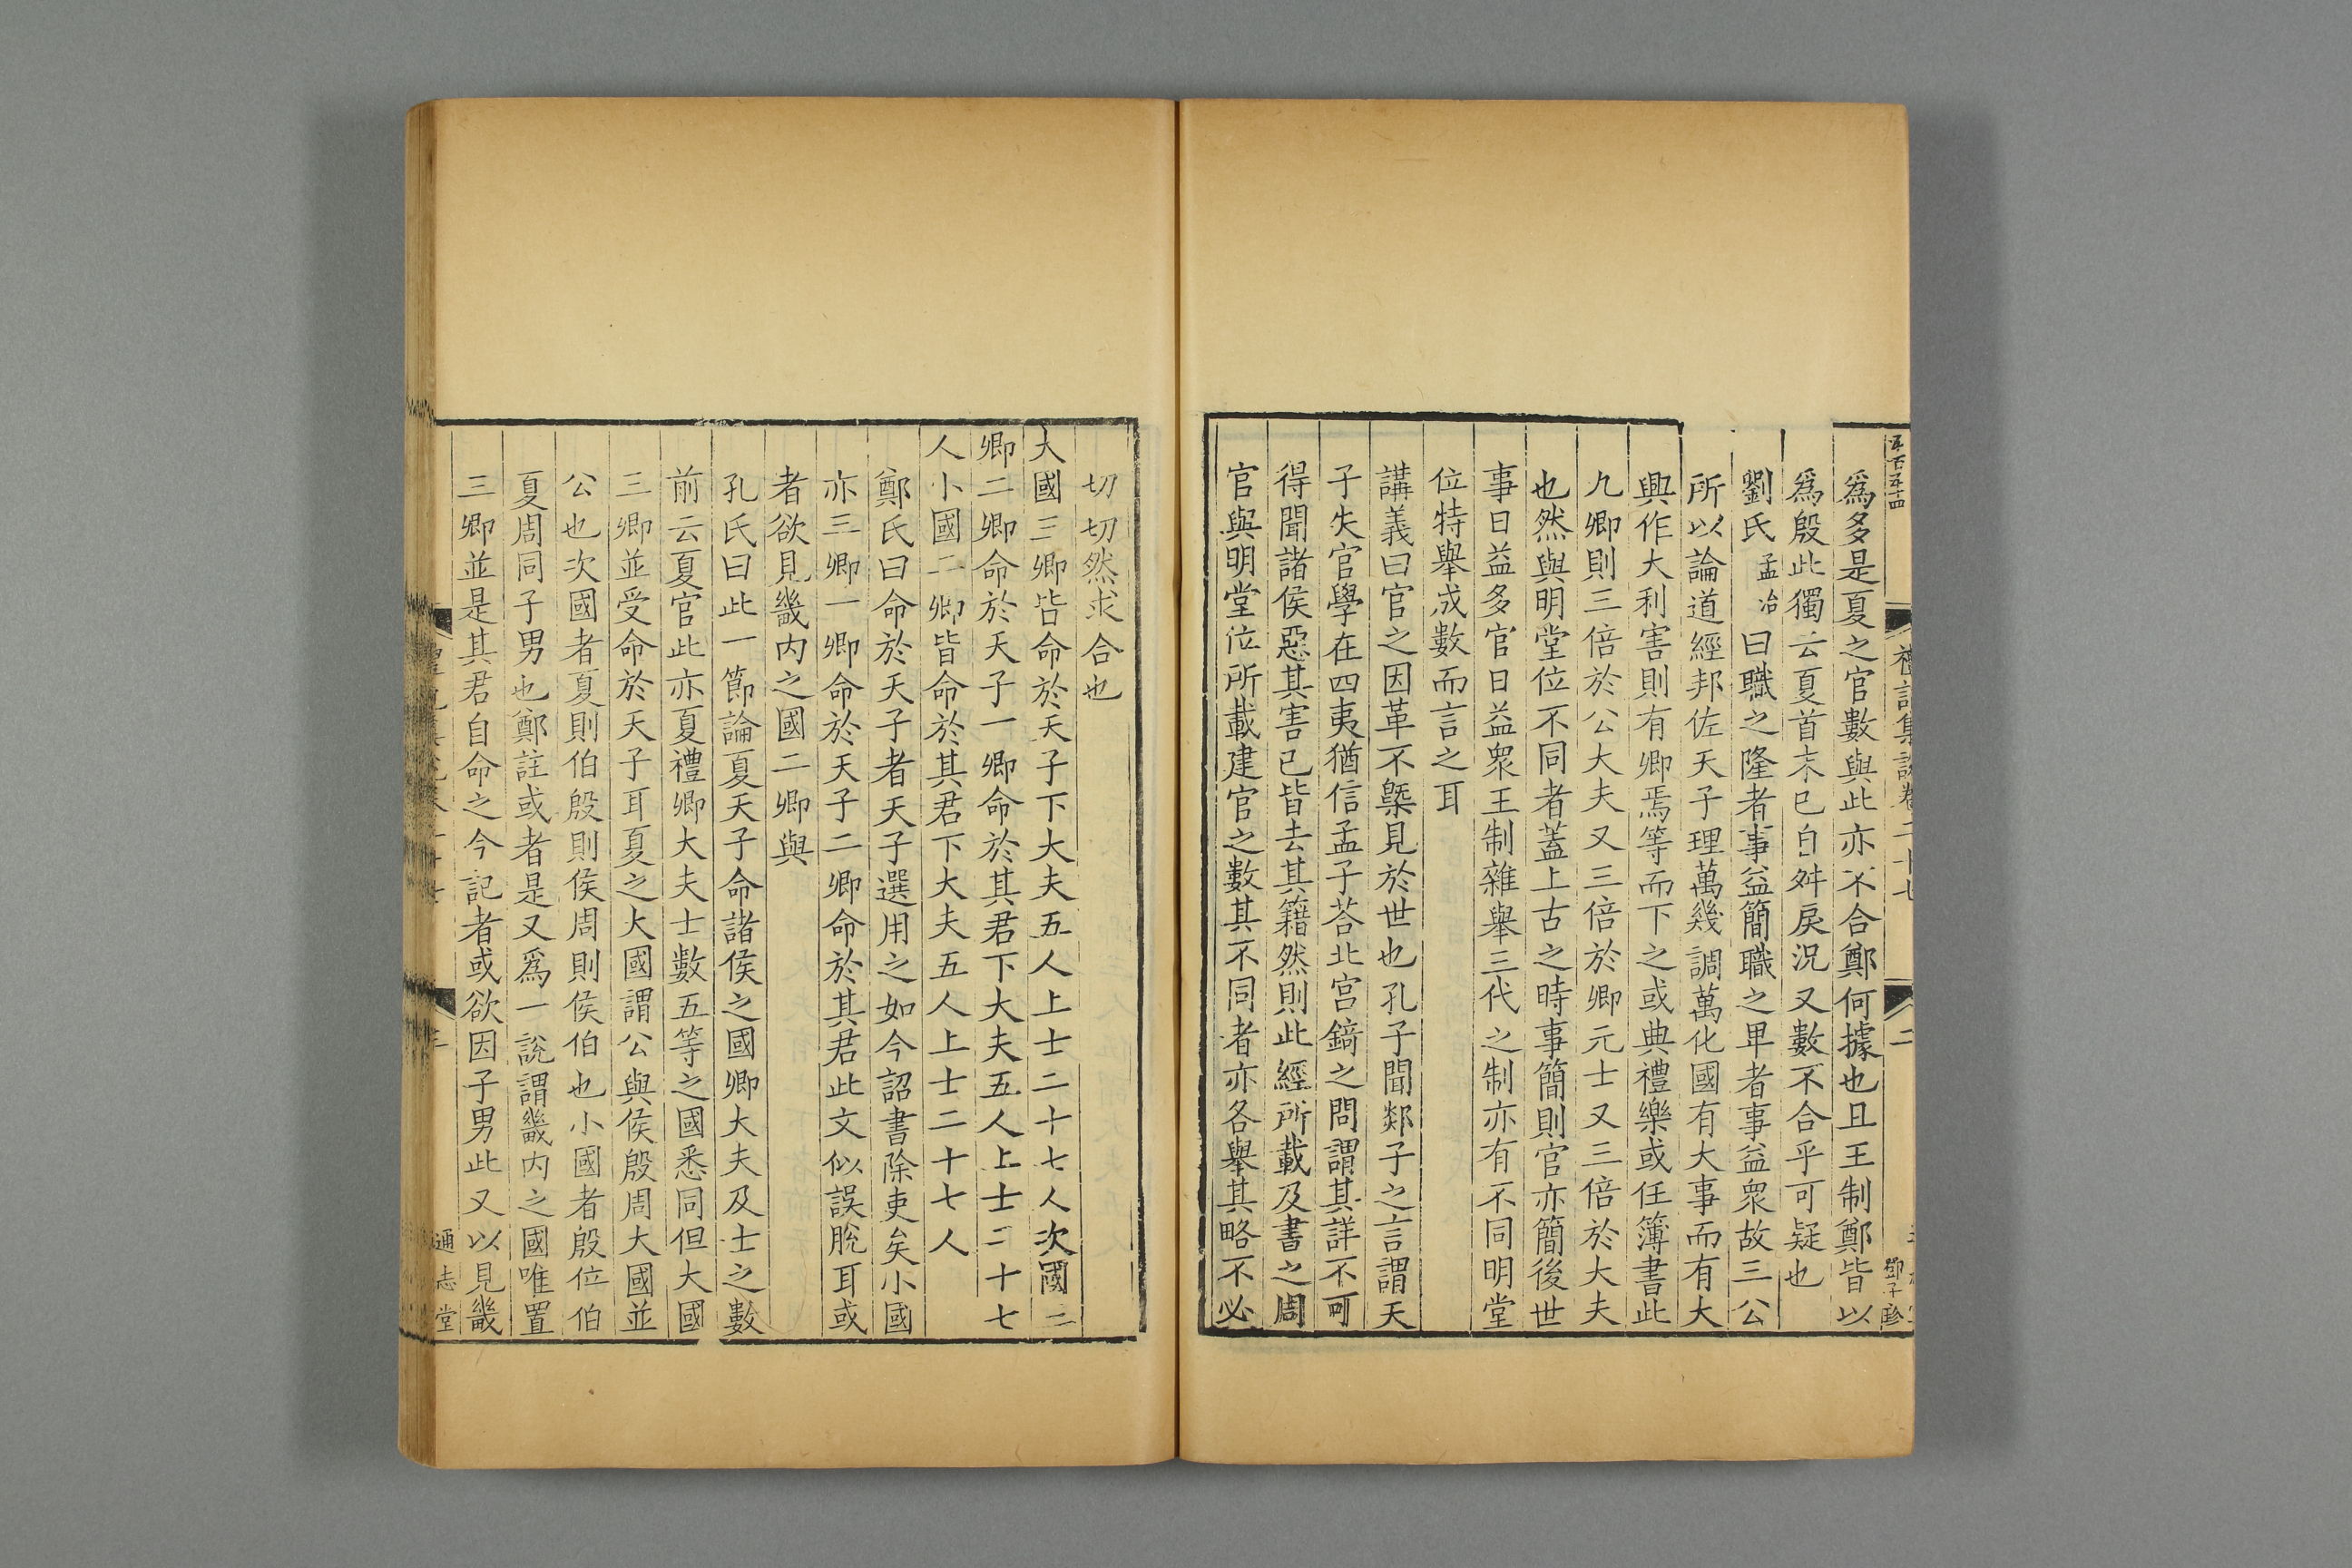 爲多是夏之官數與此亦不合鄭何據也且王制鄭皆以
爲殷此獨云夏首末已自舛戾況又數不合乎可疑也
劉氏孟冶曰職之隆者事益簡職之卑者事益衆故三公
所以論道經邦佐天子理萬幾調萬化國有大事而有大
興作大利害則有卿焉等而下之或典禮樂或任簿書此
九卿則三倍於公大夫又三倍於卿元士又三倍於大夫
也然與明堂位不同者蓋上古之時事簡則官亦簡後世
事日益多官日益衆王制雜舉三代之制亦有不同明堂
位特舉成數而言之耳
講義曰官之因革不槩見於世也孔子聞郯子之言謂天
子失官學在四夷猶信孟子荅北宮錡之問謂其詳不可
得聞諸侯惡其害已皆去其籍然則此經所載及書之周
官與明堂位所載建官之數其不同者亦各舉其略不必
切切然求合也
大國三卿皆命於天子下大夫五人上士二十七人次國三
卿二卿命於天子一卿命於其君下大夫五人上士二十七
人小國二卿皆命於其君下大夫五人上士二十七人
鄭氏曰命於天子者天子選用之如今詔書除吏矣小國
亦三卿一卿命於天子二卿命於其君此文似誤脫耳或
者欲見畿内之國二卿與
孔氏曰此一節論夏天子命諸侯之國卿大夫及士之數
前云夏官此亦夏禮卿大夫士數五等之國悉同但大國
三卿並受命於天子耳夏之大國謂公與侯殷周大國並
公也次國者夏則伯殷則侯周則侯伯也小國者殷位伯
夏周同子男也鄭註或者是又爲一說謂畿内之國唯置
三卿並是其君自命之今記者或欲因子男此又以見畿
禮記集說卷二十七
二
鄧子珍
通志堂